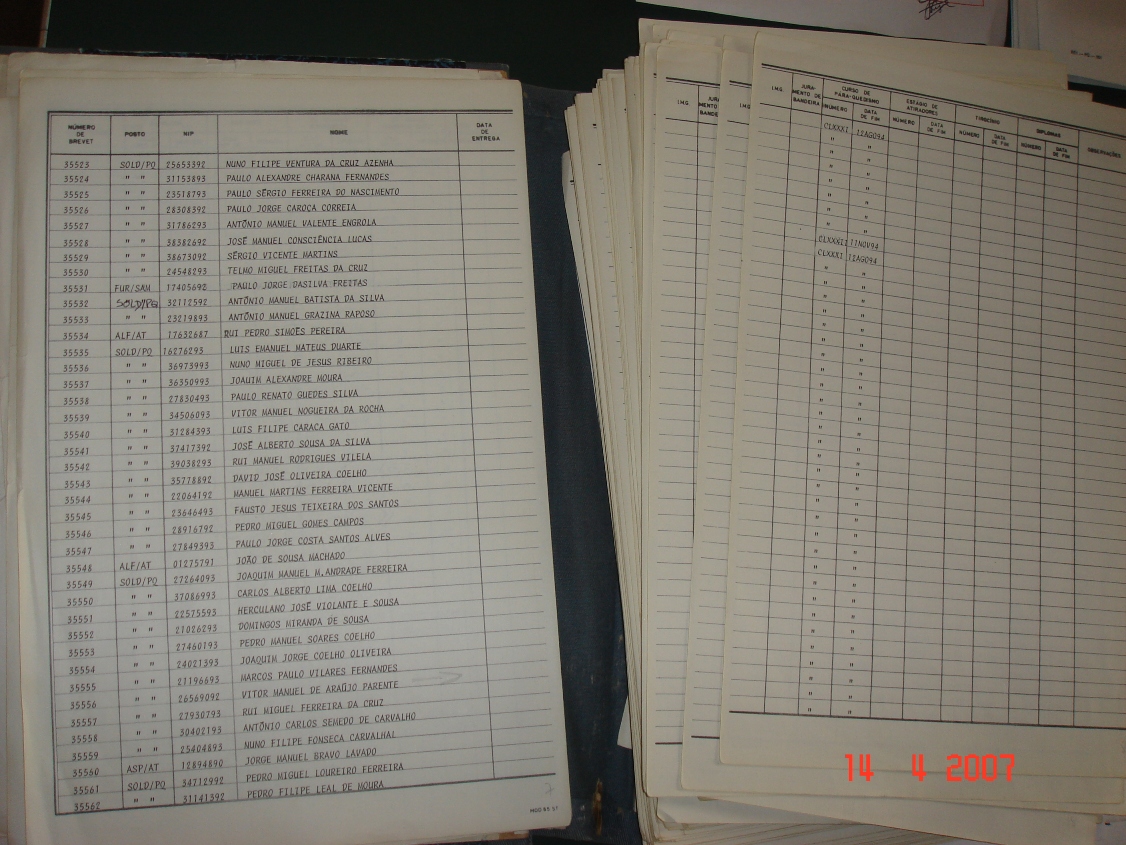 NÚMERO DE BREVET POSTO NIP NOME DATA DE ENTREGA
35523 SOLD/PQ 25653392 NUNO FILIPE VENTURA DA CRUZ AZENHA
35524 " " 31153893 PAULO ALEXANDRE CHARANA FERNANDES
35525 " " 23518793 PAULO SÉRGIO FERREIRA DO NASCIMENTO
35526 " " 28308392 PAULO JORGE CAROÇA CORREIA
35527 " " 31786293 ANTÓNIO MANUEL VALENTE ENGROLA
35528 " " 38382692 JOSÉ MANUEL CONSCIÊNCIA LUCAS
35529 " " 38673092 SÉRGIO VICENTE MARTINS
35530 " " 24548293 TELMO MIGUEL FREITAS DA CRUZ
35531 FUR/SAM 17405692 PAULO JORGE DASILVA FREITAS
35532 SOLD/PQ 32112592 ANTÓNIO MANUEL BATISTA DA SILVA
35533 " " 23219893 ANTÓNIO MANUEL GRAZINA RAPOSO
35534 ALF/AT 17632687 RUI PEDRO SIMOÉS PEREIRA
35535 SOLD/PQ 16276293 LUIS EMANUEL MATEUS DUARTE
35536 " " 36973993 NUNO MIGUEL DE JESUS RIBEIRO
35537 " " 36350993 JOAUIM ALEXANDRE MOURA
35538 " " 27830493 PAULO RENATO GUEDES SILVA
35539 " " 34506093 VITOR MANUEL NOGUEIRA DA ROCHA
35540 " " 31284393 LUIS FILIPE CARAÇA GATO
35541 " " 37417392 JOSÉ ALBERTO SOUSA DA SILVA
35542 " " 39038293 RUI MANUEL RODRIGUES VILELA
35543 " " 35778892 DAVID JOSÉ OLIVEIRA COELHO
35544 " " 22064192 MANUEL MARTINS FERREIRA VICENTE
35545 " " 23646493 FAUSTO JESUS TEIXEIRA DOS SANTOS
35546 " " 28916792 PEDRO MIGUEL GOMES CAMPOS
35547 " " 27849393 PAULO JORGE COSTA SANTOS ALVES
35548 ALF/AT 01275791 JOÃO DE SOUSA MACHADO
35549 SOLD/PQ 27264093 JOAQUIM MANUEL M.ANDRADE FERREIRA
35550 " " 37086993 CARLOS ALBERTO LIMA COELHO
35551 " " 22575593 HERCULANO JOSÉ VIOLANTE E SOUSA
35552 " " 21026293 DOMINGOS MIRANDA DE SOUSA
35553 " " 27460193 PEDRO MANUEL SOARES COELHO
35554 " " 24021393 JOAQUIM JORGE COELHO OLIVEIRA
35555 " " 21196693 MARCOS PAULO VILARES FERNANDES
35556 " " 26569092 VITOR MANUEL DE ARAÚJO PARENTE
35557 " " 27930793 RUI MIGUEL FERREIRA DA CRUZ
35558 " " 30402193 ANTÓNIO CARLOS SEMEDO DE CARVALHO
35559 " " 25404893 NUNO FILIPE FONSECA CARVALHAL
35560 ASP/AT 12894890 JORGE MANUEL BRAVO LAVADO
35561 SOLD/PQ 34712992 PEDRO MIGUEL LOUREIRO FERREIRA
35562 " " 31141392 PEDRO FILIPE LEAL DE MOURA
IMG. JURAMENTO DE BANDEIRA CURSO DE PÁRA-QUEDISMO ESTÁGIO DE ATIRADORES TIROCÍNIO DIPLOMAS OBSERVAÇÕES
NÚMERO DATA DE FIM NÚMERO DATA DE FIM NÚMERO DATA DE FIM NÚMERO DATA DE FIM
CLXXXI 12AGO94
" "
" "
" "
" "
" "
" "
" "
CLXXXII 11NOV94
CLXXXI 12AGO94
14 4 2007